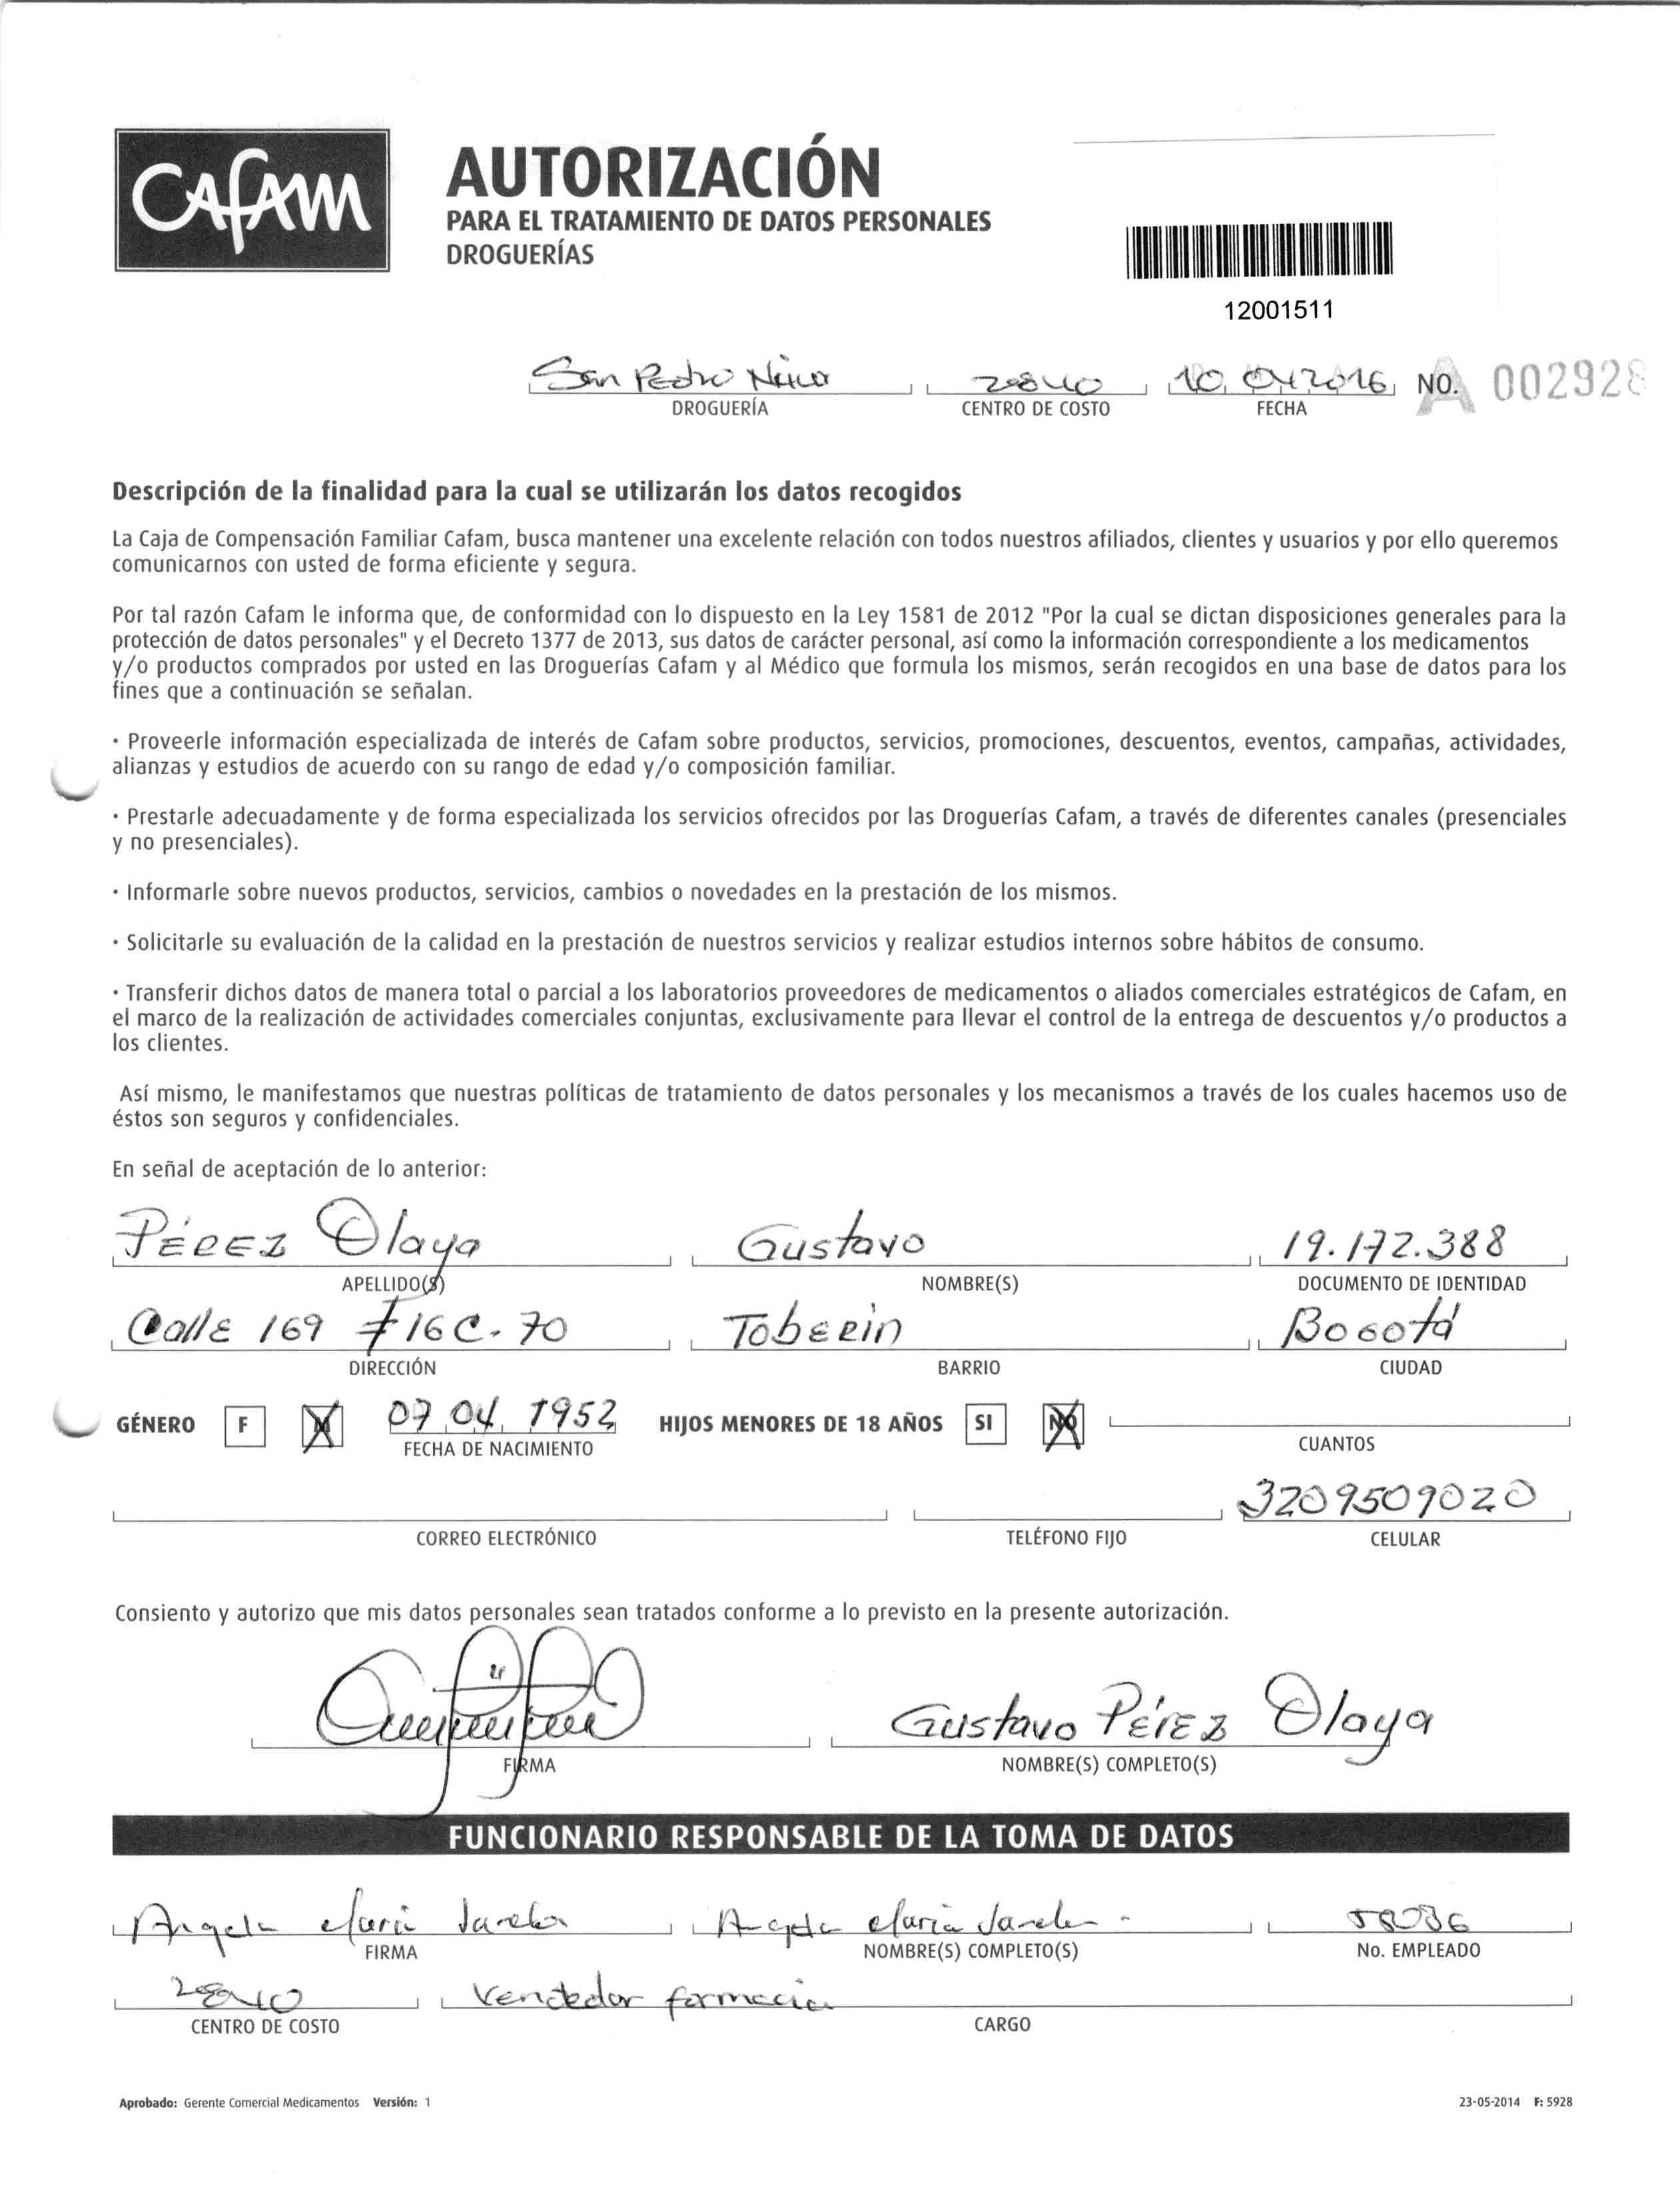 Cafam
AUTORIZACIÓN
PARA EL TRATAMIENTO DE DATOS PERSONALES
DROGUERÍAS
12001511
San Pedro 10 04 2016 NO. A 002928
DROGUERÍA CENTRO DE COSTO FECHA
Descripción de la finalidad para la cual se utilizarán los datos recogidos
La Caja de Compensación Familiar Cafam, busca mantener una excelente relación con todos nuestros afiliados, clientes y usuarios y por ello queremos
comunicarnos con usted de forma eficiente y segura.
Por tal razón Cafam le informa que, de conformidad con lo dispuesto en la Ley 1581 de 2012 "Por la cual se dictan disposiciones generales para la
protección de datos personales" y el Decreto 1377 de 2013, sus datos de carácter personal, así como la información correspondiente a los medicamentos
y/o productos comprados por usted en las Droguerías Cafam y al Médico que formula los mismos, serán recogidos en una base de datos para los
fines que a continuación se señalan.
· Proveerle información especializada de interés de Cafam sobre productos, servicios, promociones, descuentos, eventos, campañas, actividades,
alianzas y estudios de acuerdo con su rango de edad y/o composición familiar.
· Prestarle adecuadamente y de forma especializada los servicios ofrecidos por las Droguerías Cafam, a través de diferentes canales (presenciales
y no presenciales).
· Informarle sobre nuevos productos, servicios, cambios o novedades en la prestación de los mismos.
· Solicitarle su evaluación de la calidad en la prestación de nuestros servicios y realizar estudios internos sobre hábitos de consumo.
· Transferir dichos datos de manera total o parcial a los laboratorios proveedores de medicamentos o aliados comerciales estratégicos de Cafam, en
el marco de la realización de actividades comerciales conjuntas, exclusivamente para llevar el control de la entrega de descuentos y/o productos a
los clientes.
Así mismo, le manifestamos que nuestras políticas de tratamiento de datos personales y los mecanismos a través de los cuales hacemos uso de
éstos son seguros y confidenciales.
En señal de aceptación de lo anterior:
Pérez Olaya Gustavo 19.172.388
APELLIDO(S) NOMBRE(S) DOCUMENTO DE IDENTIDAD
Calle 169 #16C-70 Toberin Bogotá
DIRECCIÓN BARRIO CIUDAD
GÉNERO F M 07 04 1952 HIJOS MENORES DE 18 AÑOS SI NO
FECHA DE NACIMIENTO CUANTOS
3209509020
CORREO ELECTRÓNICO TELÉFONO FIJO CELULAR
Consiento y autorizo que mis datos personales sean tratados conforme a lo previsto en la presente autorización.
Gustavo Pérez Olaya
FIRMA NOMBRE(S) COMPLETO(S)
FUNCIONARIO RESPONSABLE DE LA TOMA DE DATOS
Angela María Angela María
FIRMA NOMBRE(S) COMPLETO(S) No. EMPLEADO
Vendedor farmacia
CENTRO DE COSTO CARGO
Aprobado: Gerente Comercial Medicamentos Versión: 1 23-05-2014 F: 5928